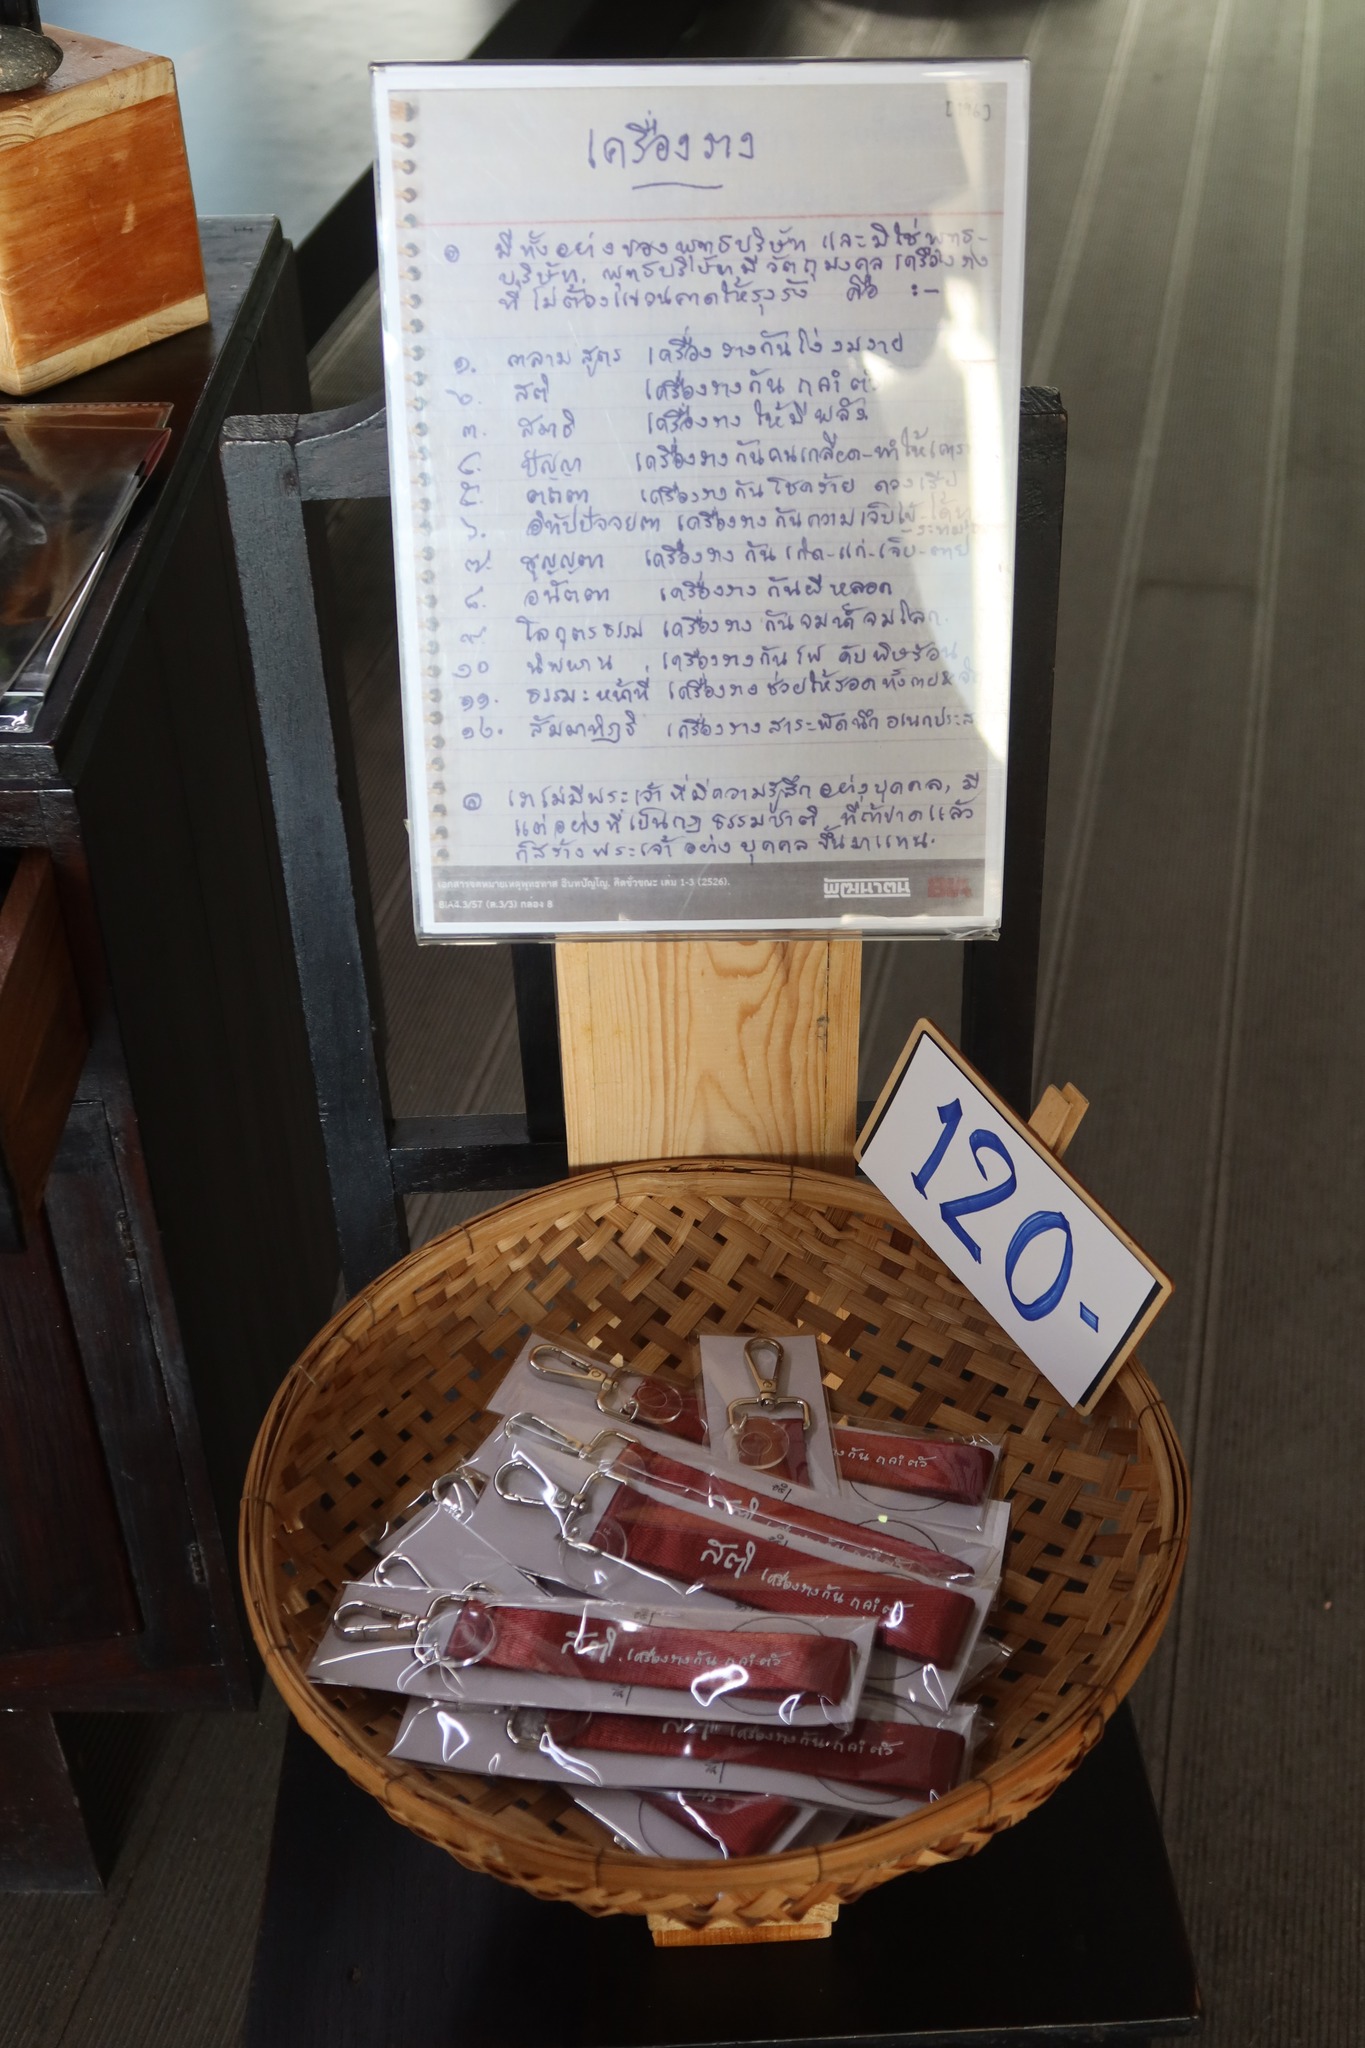 เครื่องราง
มีทั้งอย่างของพุทธบริษัท และมิใช่พุทธ-
บริษัท. พุทธบริษัทมีวัตถุมงคล เครื่องราง
ที่ไม่ต้องแขวนคาดให้รุงรัง คือ :-
๑. กาลามสูตร เครื่องรางกันโง่งมงาย
๒. สติ เครื่องรางกัน
๓. สมาธิ เครื่องราง ให้มีพลัง
๔. ปัญญา เครื่องรางกันคนเกลียด-ทำให้
๕. ตถตา เครื่องรางกันโชคร้าย ดวง
๖. อิทัปปัจจยตา เครื่องรางกันความเจ็บไข้
๗. สุญญตา เครื่องรางกัน เกิด-แก่-เจ็บ-ตาย
๘. อนัตตา เครื่องรางกันผีหลอก
๙. โลกุตรธรรม เครื่องรางกันจมน้ำจมโลก.
๑๐ นิพพาน เครื่องรางกันไฟ ดับพิษร้อน
๑๑. ธรรมะหน้าที่ เครื่องรางช่วยให้รอดทั้งกาย
๑๒. สัมมาทิฏฐิ เครื่องรางสาระพัดนึก
เราไม่มีพระเจ้าที่มีความรู้สึกอย่างบุคคล, มี
แต่อย่างที่เป็นกฎธรรมชาติ, ที่ถ้าขาดแล้ว
ก็สร้างพระเจ้าอย่างบุคคลขึ้นมาแทน.
เอกสารจดหมายเหตุพุทธทาส อินทปัญโญ. คิดชั่วขณะ เล่ม 1-3 (2526).
BIA4.3/57 (ล.3/3) กล่อง 8
พัฒนาตน BIA
120-
รางกัน กลำตัว
สติ
สติ เครื่องรางกัน กลำตัว
สติ เครื่องรางกัน กลำตัว
สติ เครื่องรางกัน กลำตัว